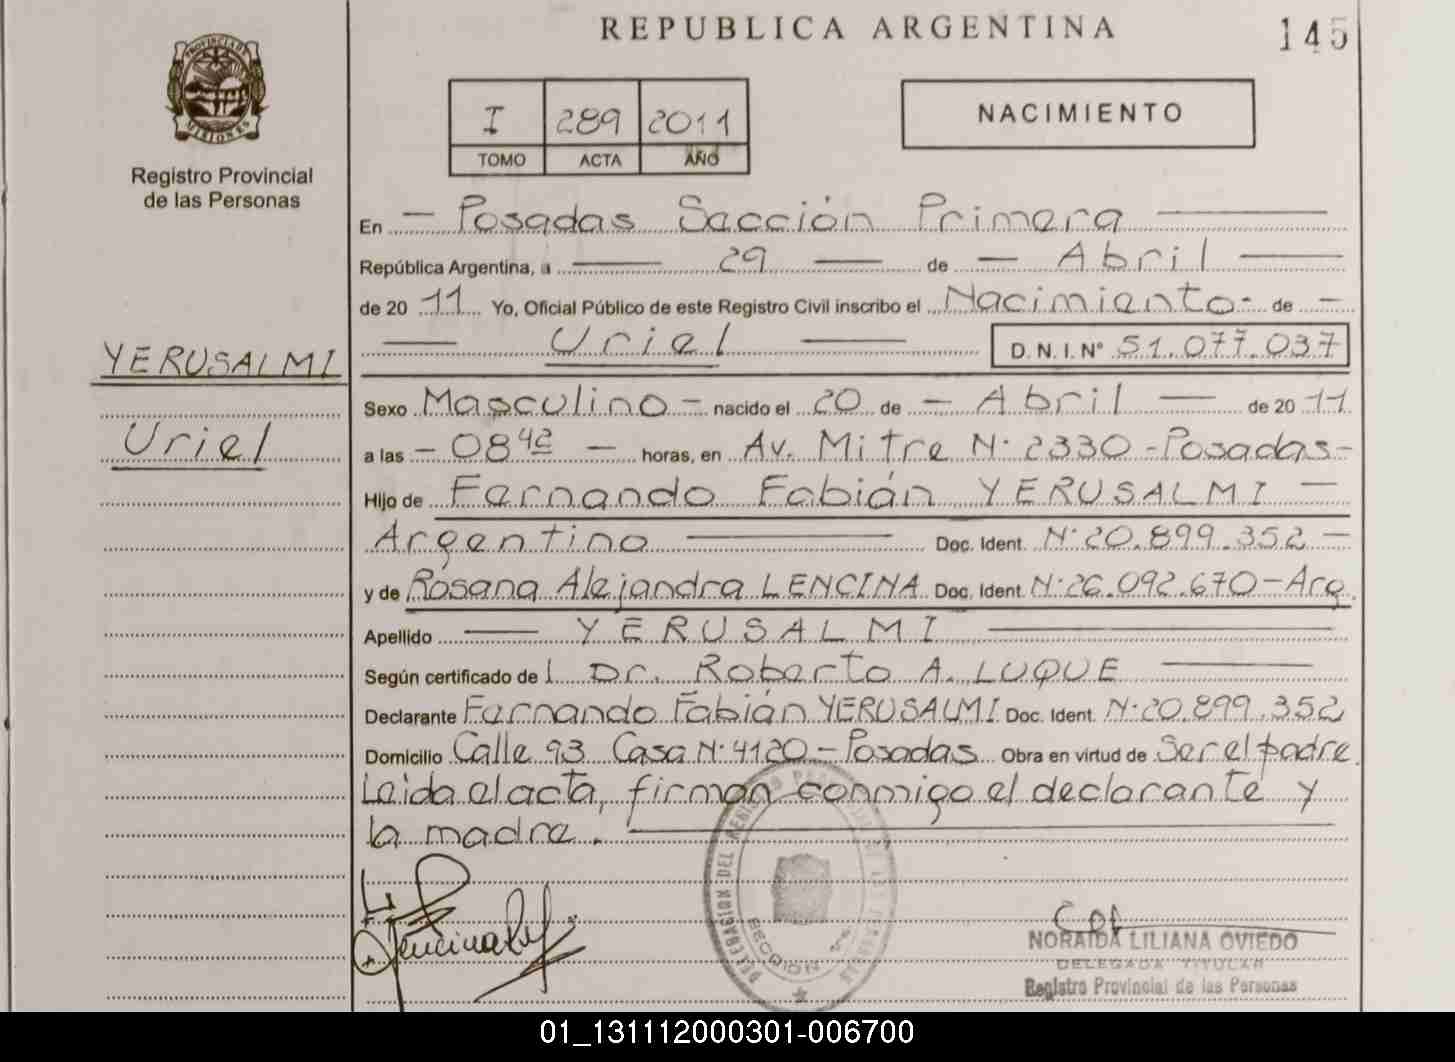 REPUBLICA ARGENTINA
145
PROVINCIA DE MISIONES
Registro Provincial
de las Personas
I 289 2011
TOMO ACTA AÑO
NACIMIENTO
En — Posadas Sección Primera —
República Argentina, a — 29 — de — Abril —
de 20 11 Yo, Oficial Público de este Registro Civil inscribo el Nacimiento- de —
— Uriel — D. N. I. Nº 51.077.037
YERUSALMI
Uriel
Sexo Masculino — nacido el 20 de — Abril — de 20 11
a las — 08 42 — horas, en Av. Mitre N· 2330 - Posadas -
Hijo de Fernando Fabián YERUSALMI —
Argentino — Doc. Ident. N· 20.899.352 —
y de Rosana Alejandra LENCINA Doc. Ident. N· 26.092.670 - Arg.
Apellido — YERUSALMI —
Según certificado de l Dr. Roberto A. LUQUE —
Declarante Fernando Fabián YERUSALMI Doc. Ident. N· 20.899.352
Domicilio Calle 93 Casa N· 4120 - Posadas Obra en virtud de Ser el padre.
Leida el acta, firman conmigo el declarante y
la madre. —
DELEGACION DEL REGISTRO DE LAS PERSONAS
SECCION 1ª
NORAIDA LILIANA OVIEDO
DELEGADA TITULAR
Registro Provincial de las Personas
01_131112000301-006700